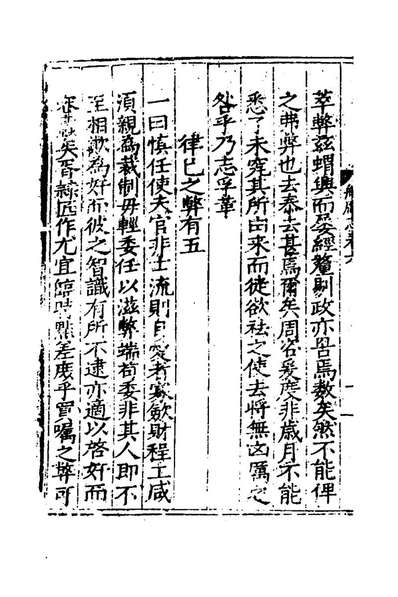 萃弊玆蝟興而晏經釐剔政亦咎焉数矣然不能俾
之弗弊也去泰去甚焉爾矣周咨爰度非歲月不能
悉了未窮其所由来而徒欲祛之使去將無凶厲之
咎乎乃志弊章
律己之弊有五
一曰慎任使夫官非士流則自愛者寡歛財程工咸
須親為裁制毋輕委任以滋弊端苟委非其人即不
至相欺為好而彼之智識有所不逮亦適以啓奸而
矣吾綜匠作尤宜差度乎曾嘱之弊可